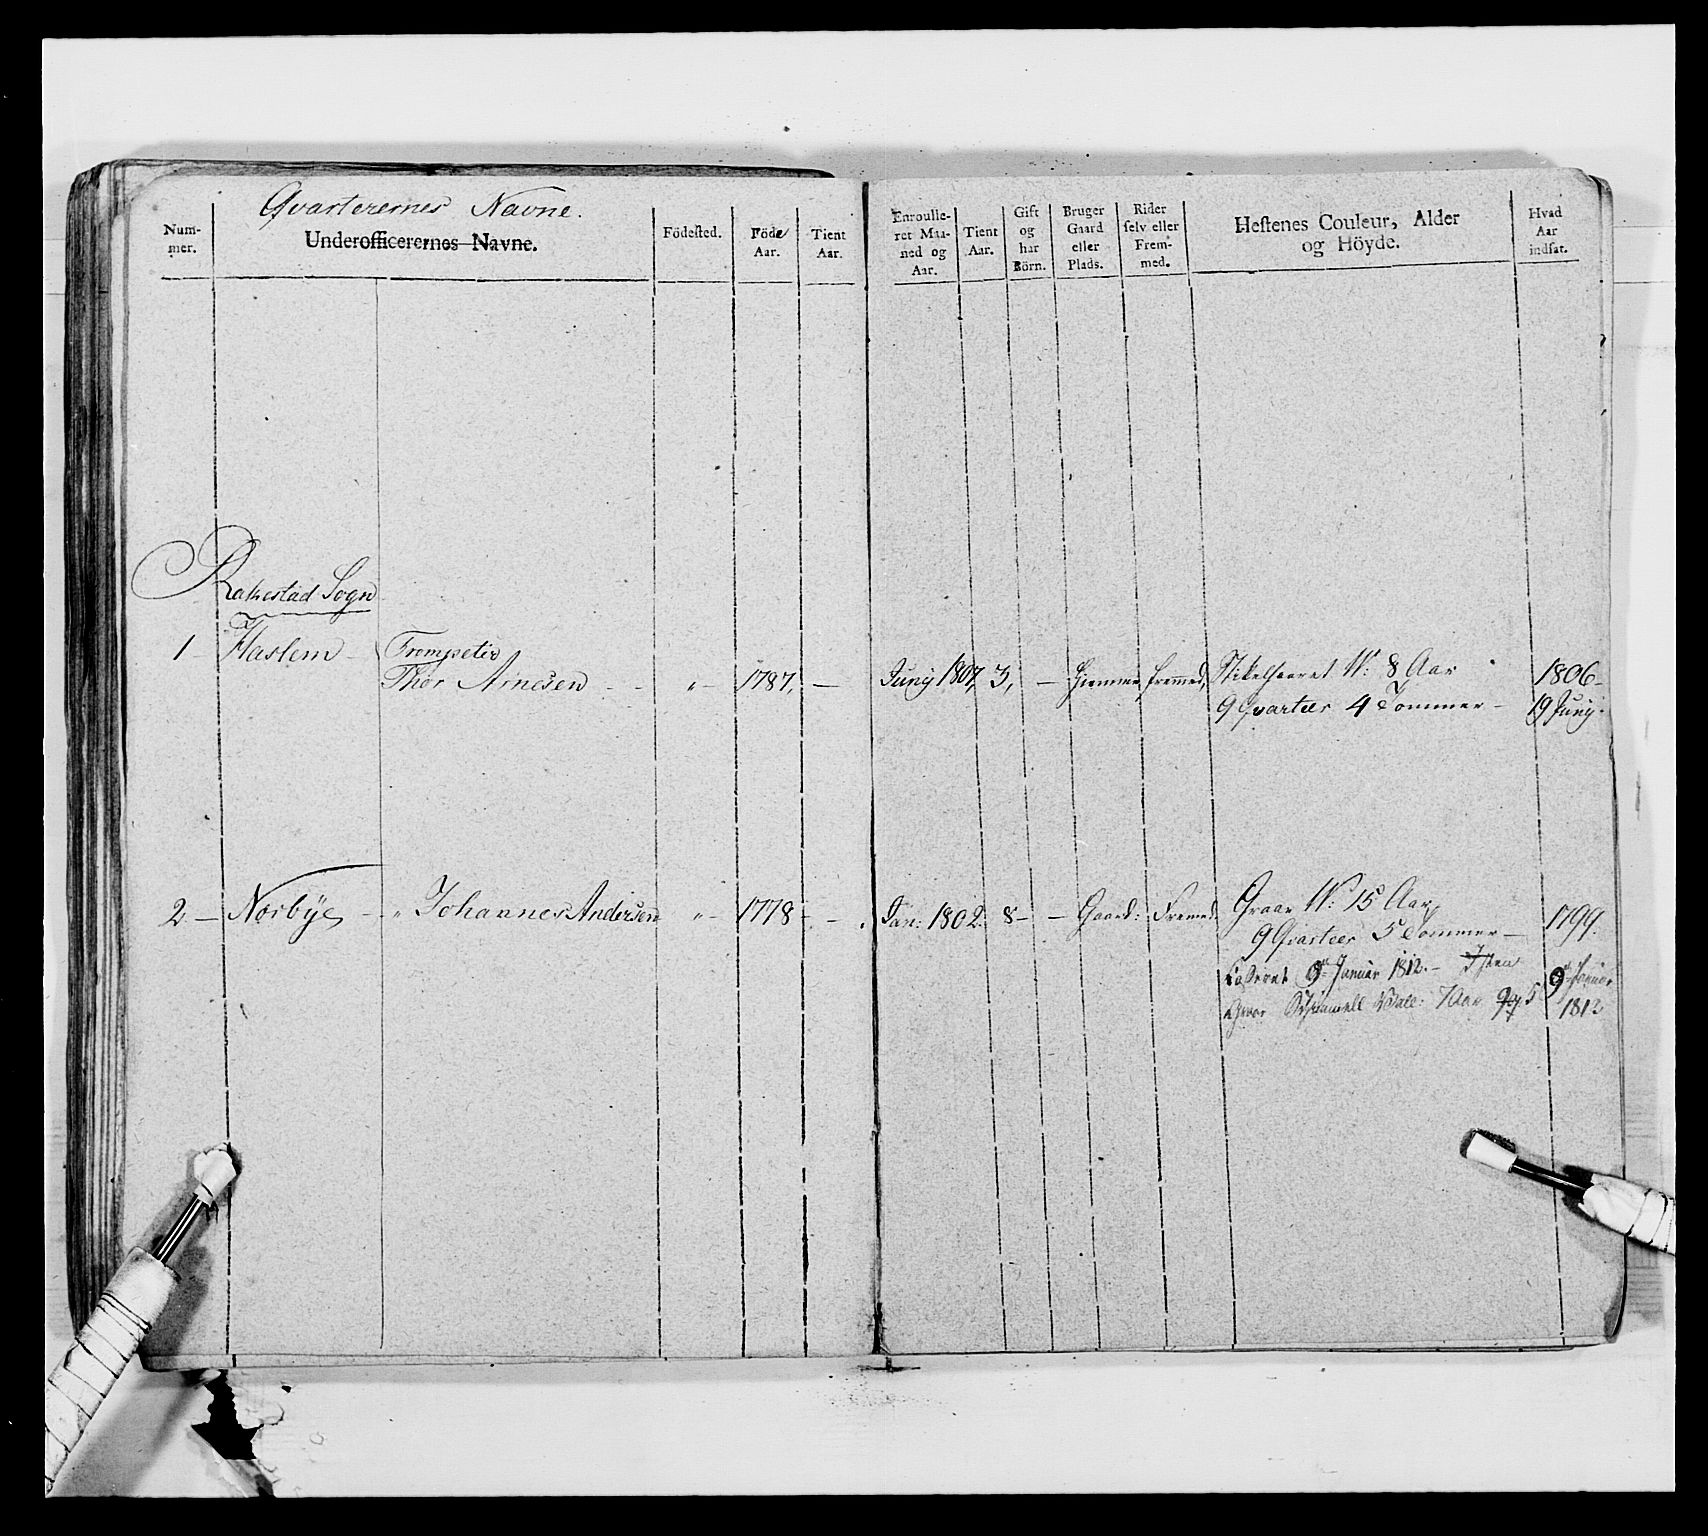 Qvarterernes Navne.
Num-
mer.
Underofficerernes Navne.
Födested.
Föde
Aar.
Tient
Aar.
Enroulle-
ret Maa-
ned og
Aar.
Tient
Aar.
Gift
og
har
Börn.
Bruger
Gaard
eller
Plads.
Rider
selv eller
Frem-
med.
Hestenes Couleur, Alder
og Höyde.
Hvad
Aar
indsat.
Rakestad Sogn
1 - Haslem - Trompeter
Thor Arnesen - - " - 1787, - Juny 1807, 3, - Hiemme fremed, Stikelhaaret W: 8 Aar 1806 -
9 Qvarteer 4 Tommer - 19 Juny.
2 - Norbÿe - " Johannes Andersen " - 1778 - - Jan: 1802. 8 - - Gaard: Fremed. Graae W: 15 Aar, 1799.
9 Qvarteer 5 Tommer -
Casseret 9de Januar 1812. - 9de Januar
Graae Schimmell Vall: 7 Aar 9q 5 1812